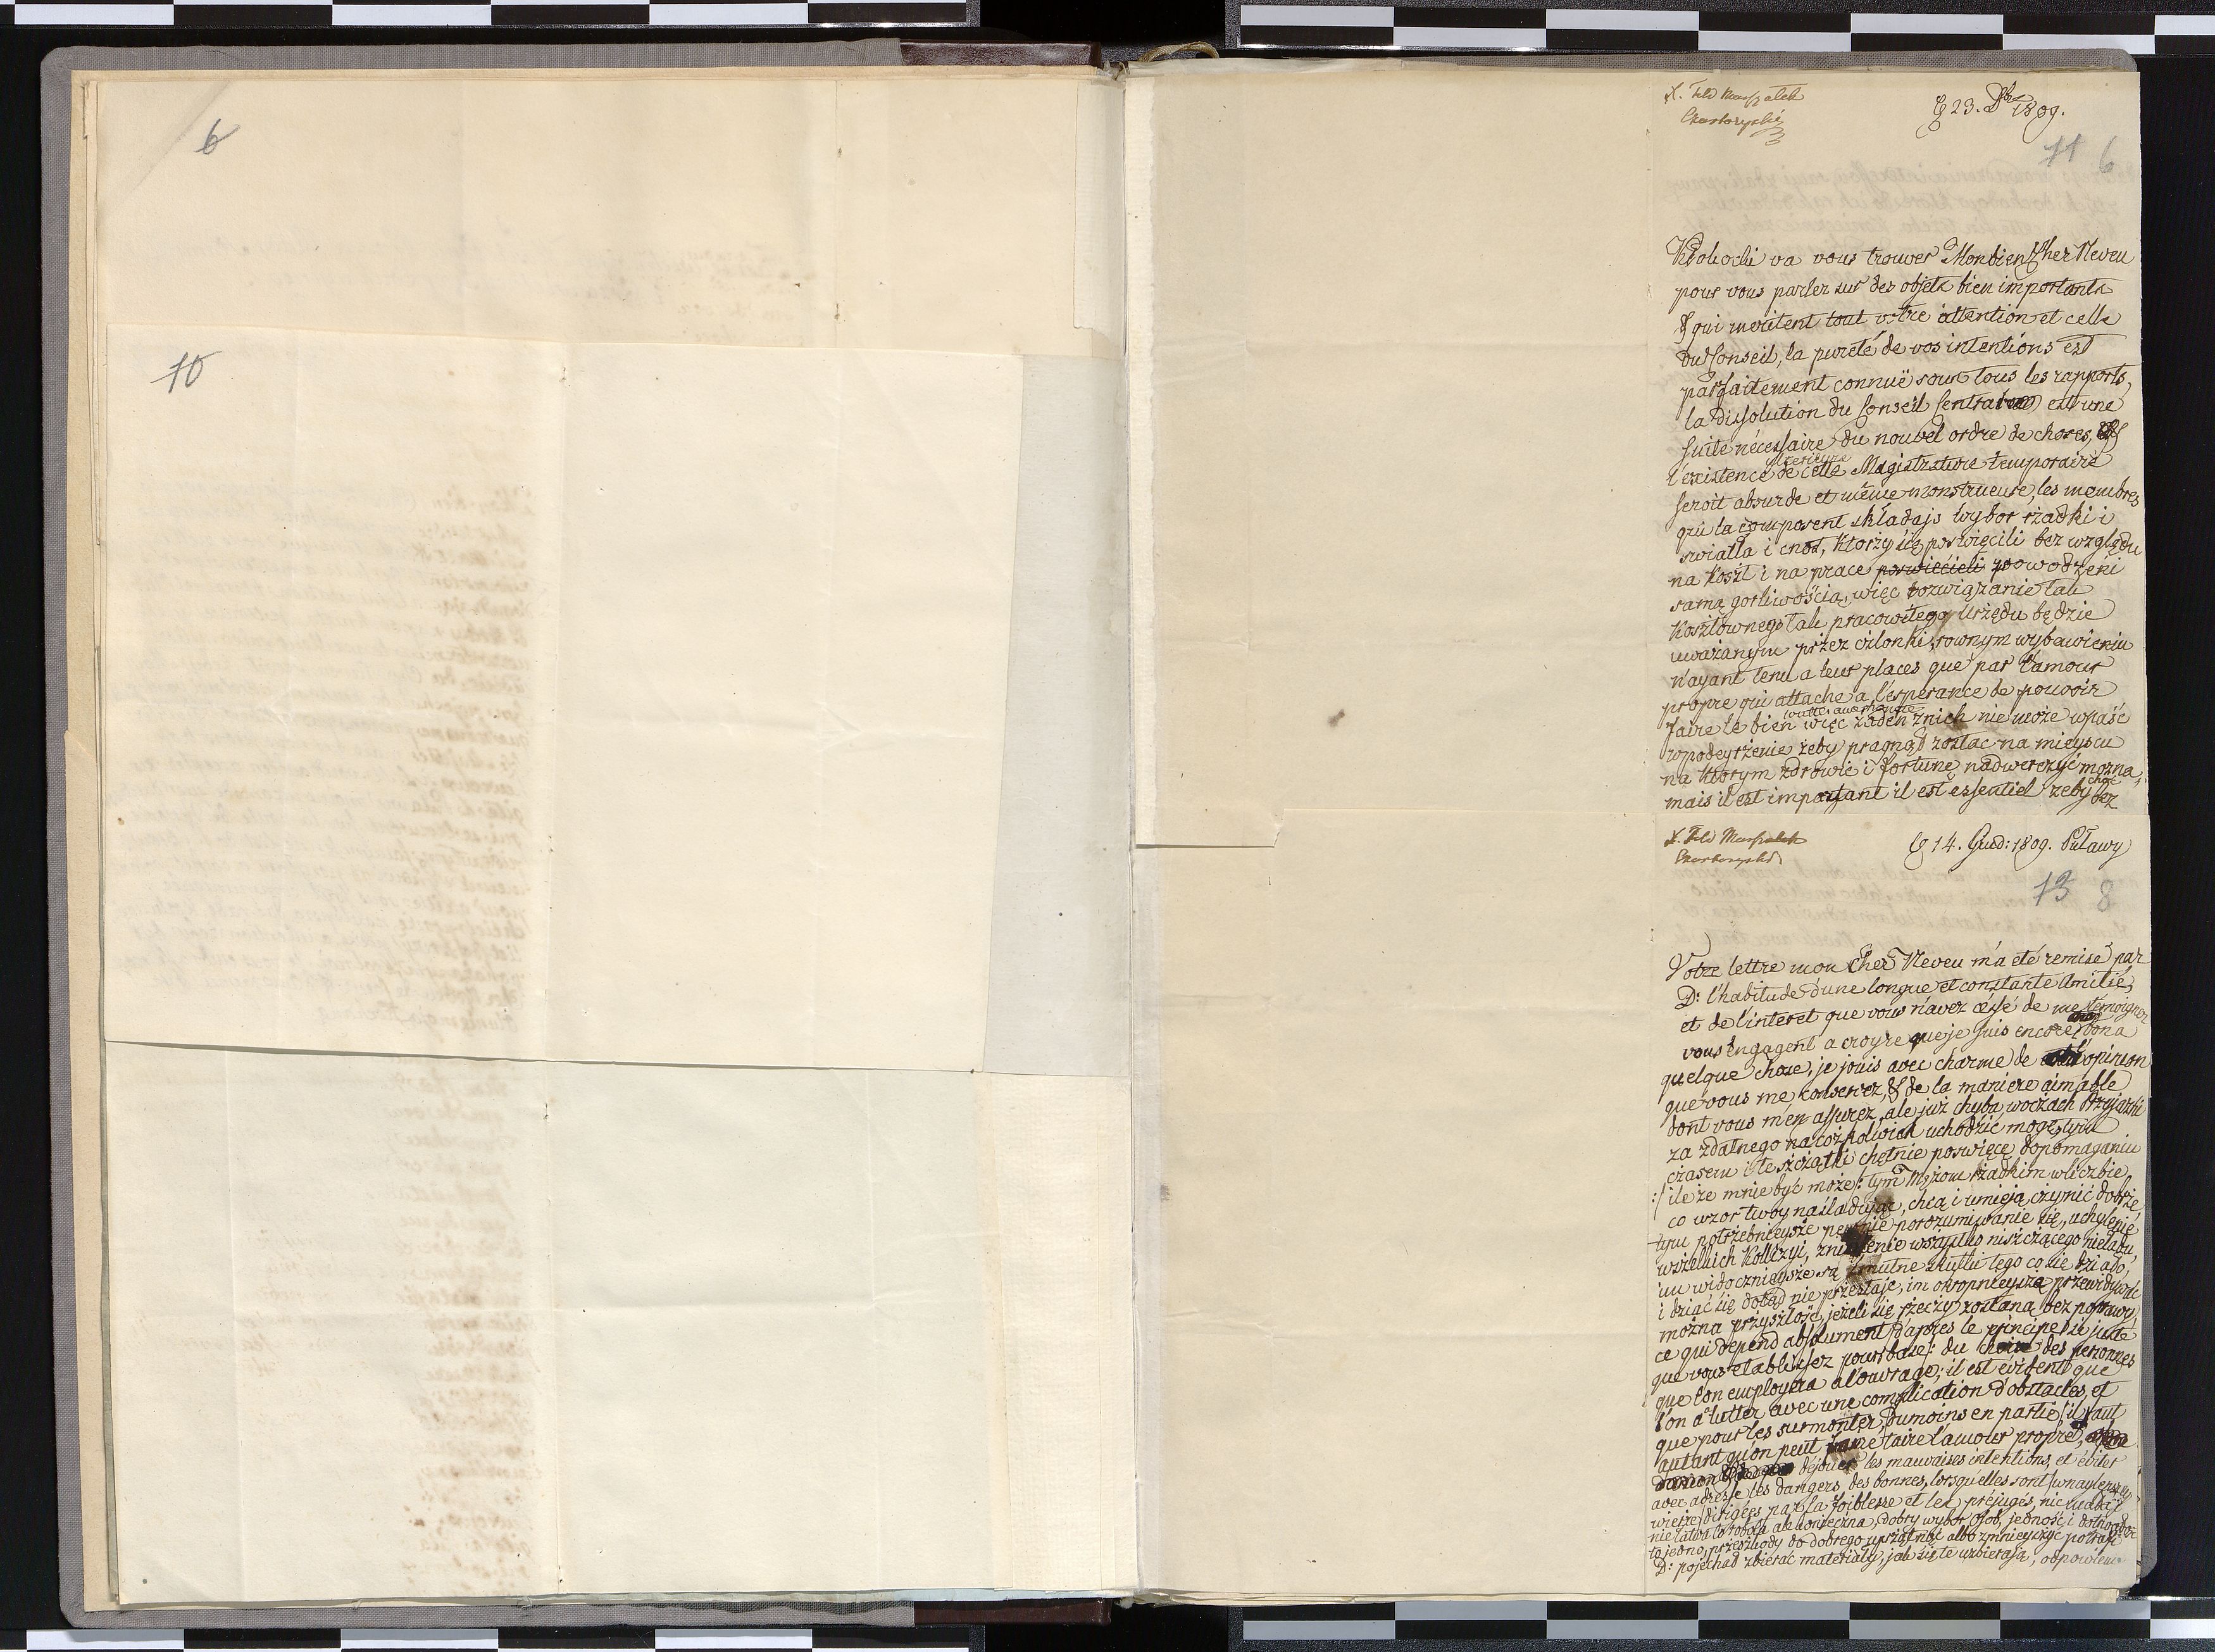 6
10
X. Feld Marszałek
Czartoryski
23. Dbre 1809.
11 6
va vous trouver Mon bien Cher Neveu
pour vous parler sur des objets bien importants
& qui meritent tout votre attention et celle
du Conseil, la pureté de vos intentions est
parfaitement connuë sous tous les rapports,
la dissolution du Conseil Central est une
suite nécessaire du nouvel ordre de choses, &
l'existence de cette Magistrature temporaire
seroit absurde et même monstrueuse, les membres
qui la composent składają wybor rzadki i
swiatła i cnot, ktorzy się poswięcili bez względu
na koszt i na prace poswiecieli powodzeni
samą gorliwością, więc rozwiązanie tak
kosztownego tak pracowitego Urzędu będzie
uważanym przez członki, rownym wybawieniu
n'ayant tenu a leur places que par l'amour
propre qui attache a l'esperance de pouvoir
faire le bien więc żaden znich nie może wpaść
wpodeyrzenie żeby pragnął zostac na mieyscu
na ktorym zdrowie i fortunę nadwerezyć można,
mais il est important il est essentiel zeby choć bez
X. Feld Marszałek
Czartoryski
14. Grud: 1809. Puławy
13 8
Votre lettre mon Cher Neveu m'a eté remise par
D: l'habitude d'une longue et constante Amitié,
et de l'interet que vous n'avez cessé de me temoigner
vous engagent a croyre que je suis encore bon a
quelque chose, je jouis avec charme de l'opinion
que vous me conservez, & de la maniere aimable
dont vous m'en assurez, ale już chyba woczach Przyjazni
za zdatnego na cożkolwiek uchodzić mogę, tym
czasem i te szczątki chętnie poswięcę dopomaganiu
:/ ile ze mnie być może: tym Mężom rzadkim wliczbie,
co wzor twoy naśladując, chcą i umieją czynić dobrze
tym potrzebnieysze porozumiwanie się, uchylenie
wszelkich Kollizyi, wszystko niszczącego nieładu,
im widocznieysze są smutne skutki tego co się działo,
i dziać się dotąd nie przestaje, im okropnieyszą przewidywać
można przyszłość, jeżeli się rzeczy zostaną bez poprawy
ce qui depend absolument d'apres le principe si juste
que vous etablissez pour base: du choix des personnes
que l'on employera a l'ouvrage; il est evident que
l'on a lutter avec une complication d'obstacles, et
que pour les surmonter, dumoins en partie, il faut
autant qu'on peut faire taire l'amour propre,
dejouer les mauvaises intentions, et éviter
avec adresse les dangers, des bonnes, lorsqu'elles sont
dirigées par la foiblesse et les préjugés, nie
nie łatwa to robota ale konieczna, dobry wybor osob, jedność i
to jedno, przeszkody do dobrego uprzątnąć albo zmnieyszyć potrafi
D: pojechał zbierać materiały, jak się te uzbierają,